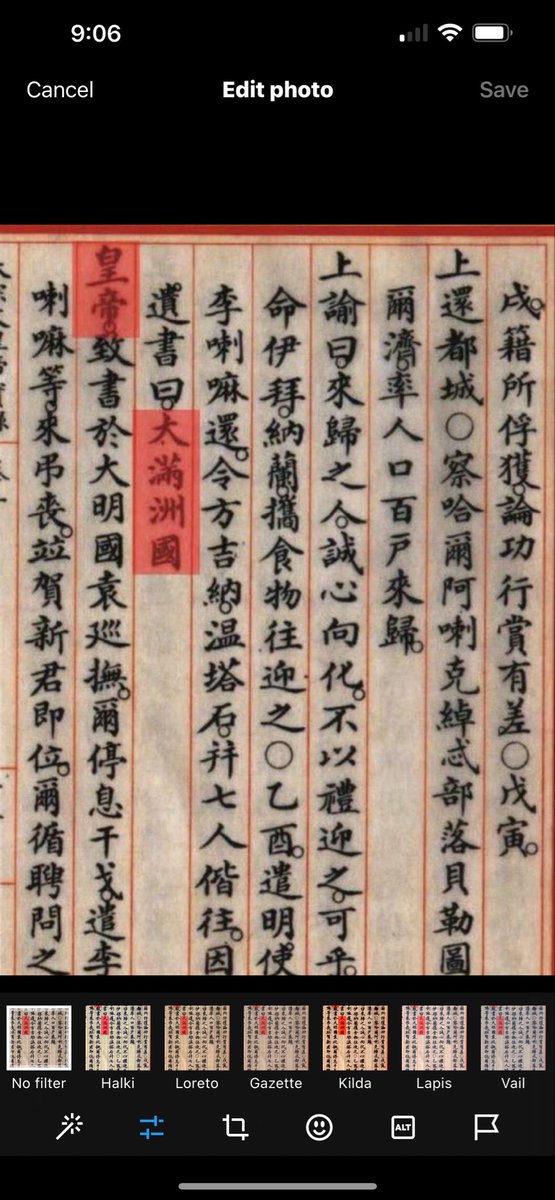 9:06
Cancel
Edit photo
Save
戌。籍所俘獲。論功行賞有差○戊寅。
上還都城○察哈爾阿喇克綽忒部落貝勒圖
爾濟。率人口百戶來歸。
上諭曰。來歸之人。誠心向化。不以禮迎之。可乎。
命伊拜。納蘭。攜食物往迎之○乙酉。遣明使
李喇嘛還。令方吉納。温塔石。并七人偕往。因
遺書曰。大滿洲國
皇帝。致書於大明國袁巡撫。爾停息干戈。遣李
喇嘛等。來吊喪。竝賀新君即位。爾循聘問之
No filter
Halki
Loreto
Gazette
Kilda
Lapis
Vail
ALT